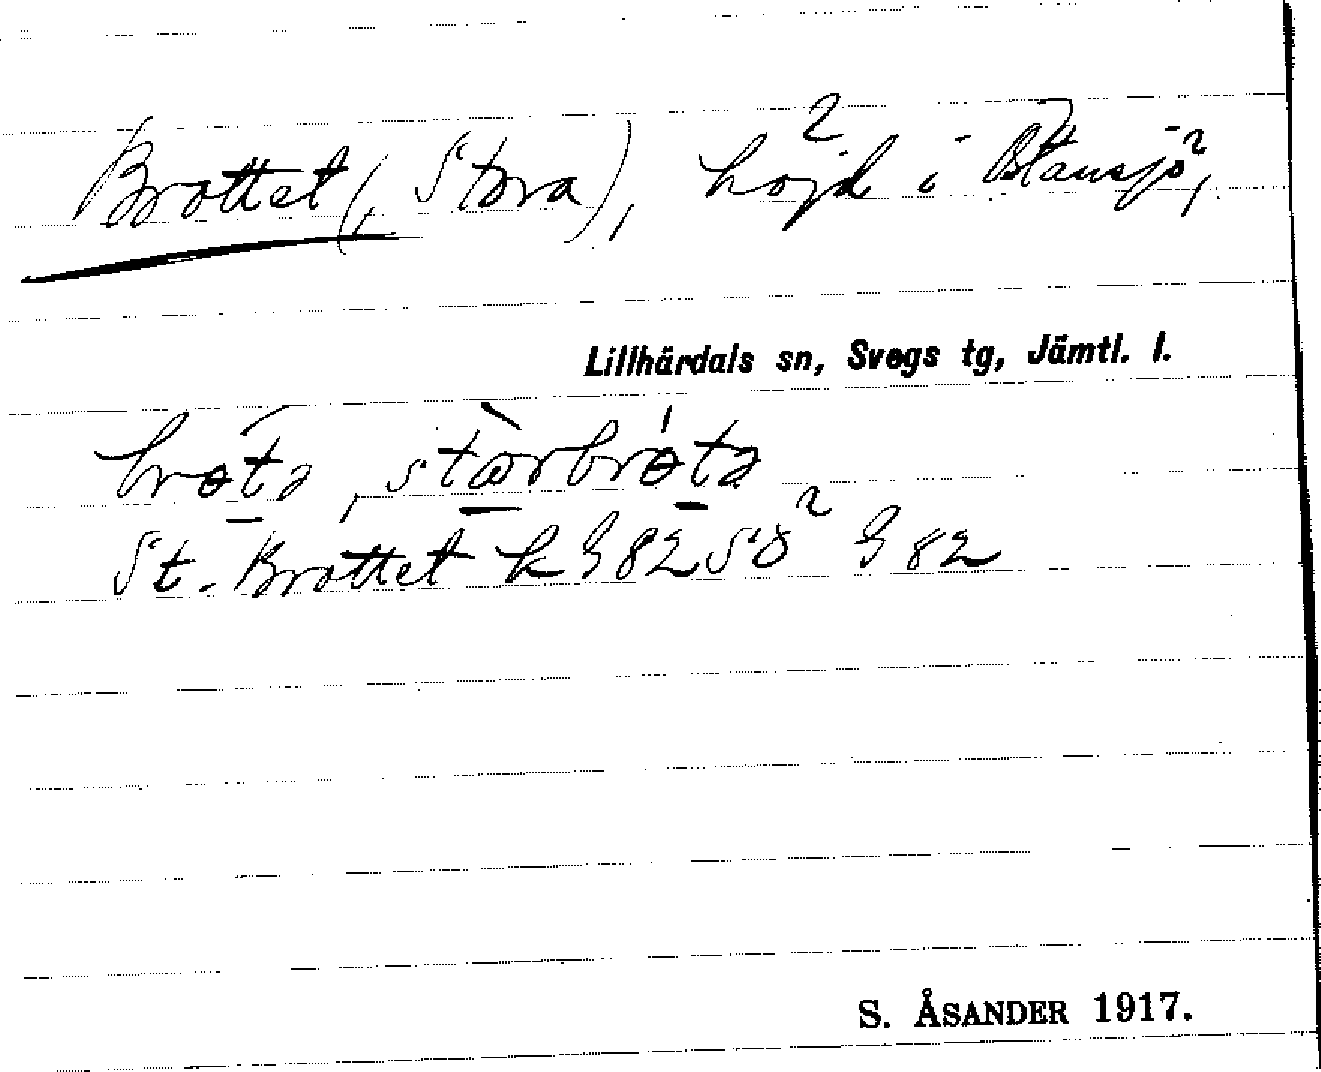 Brottet (, Stora), höjd i Blansjö,
Lillhärdals sn, Svegs tg, Jämtl. l.
brɵtə, stɷrbrɵtə
St. Brottet k G 82 SÖ G 82
S. ÅSANDER 1917.